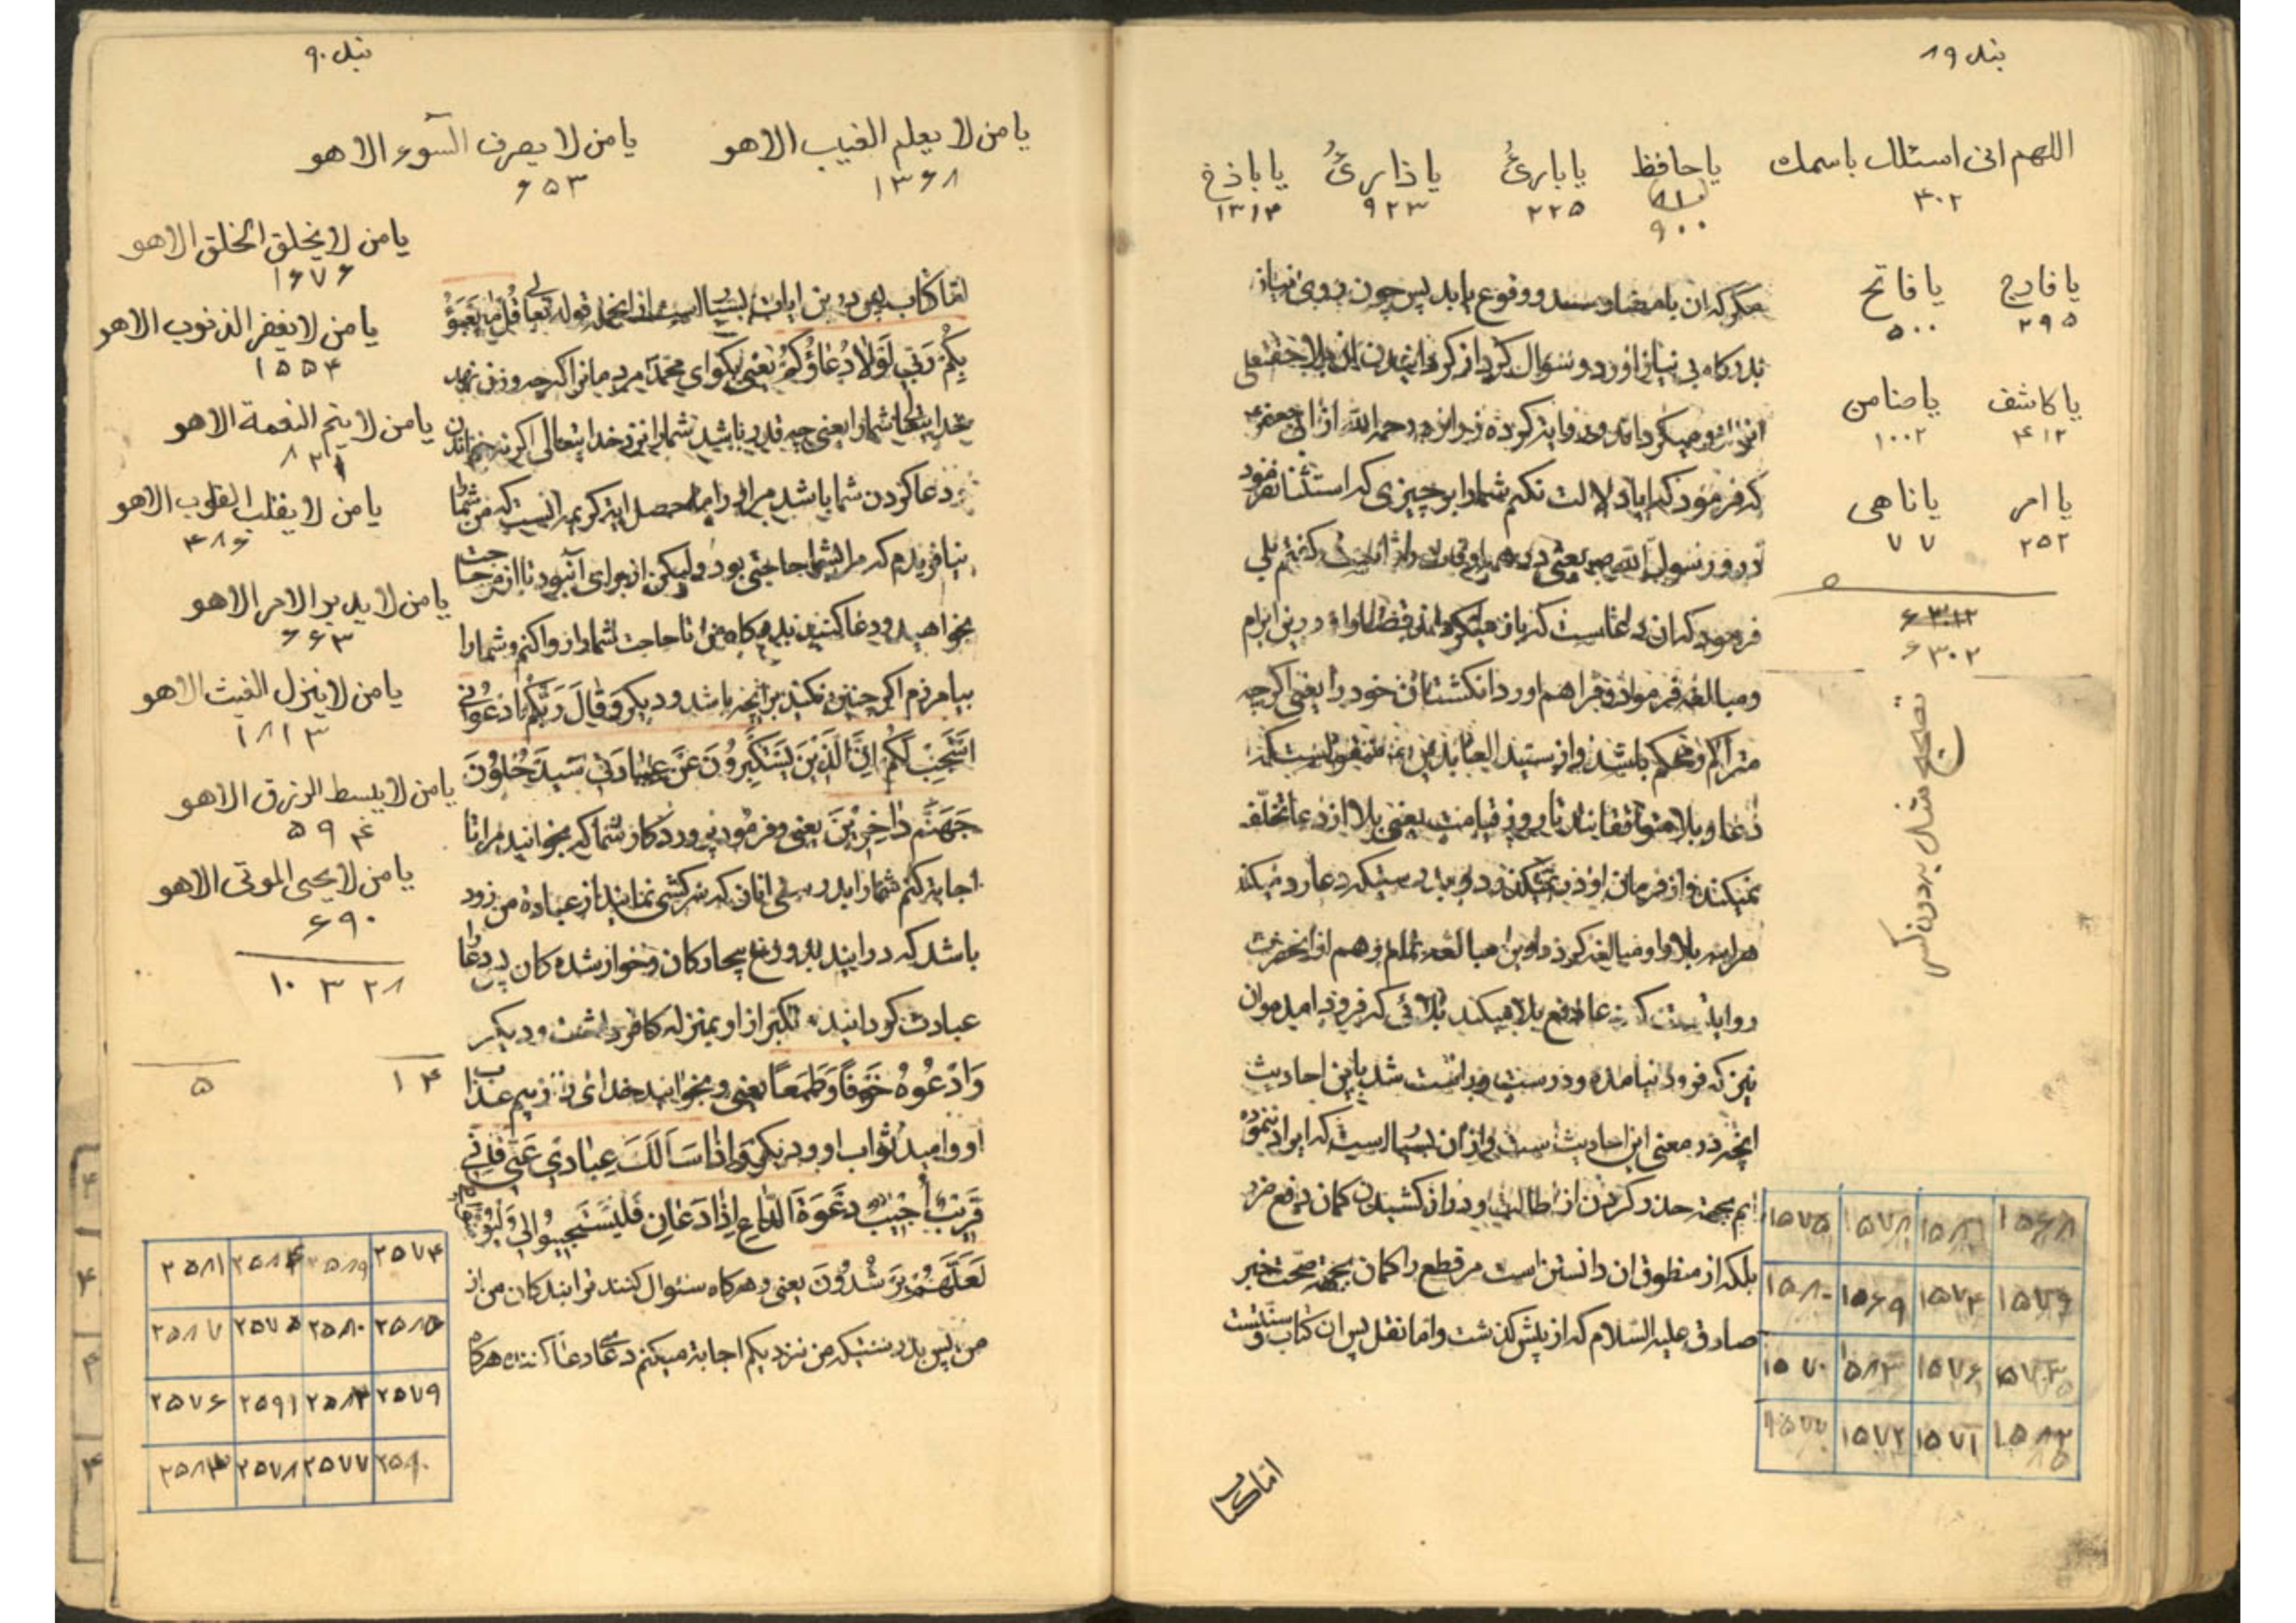 بند ۸۹
اللهم انی اسئلک باسمک یا حافظ یا بارئ یا ذارئ یا باذخ
۳۰۲ ۹۰۰ ۲۲۵ ۹۲۳ ۱۳۱۴
یا فارج یا فاتح
۲۹۵ ۵۰۰
یا کاشف یا ضامن
۴۱۲ ۱۰۰۲
یا امر یا ناهی
۲۵۲ ۷۷
۶۳۰۲
تصحیح شد بدون کسر
مکر که ان بامضا رسد و وقوع یابد پس چون بروی نیاز
بدرکاه بی نیاز اورد و سؤال کرد از کردانیدن ان بلا حقتعلی
انرا ازو میکرداند و روایت کرده زراره رحمه الله از ابی جعفر ع
که فرمود که ایا دلالت نکنم شمارا بر چیزی که استثنا نفرمود
در و رسول الله ص یعنی در همه اوقات را ثابت کفتم بلی
فرمود که ان دعاست که باز میکرداند قضا را و درین ابرام
و مبالغه فرمود و فراهم اورد انکشتان خود را یعنی اکرچه
متراکم و محکم باشد و از سید العابدین ع منقولست که
دعا و بلا متوافقانند تا روز قیامت یعنی بلا از دعا تخلف
نمیکند و از فرمان او در نمیکند و بدرستیکه دعا رد میکند
هراینه بلا را و مبالغه کرد درین مبالغه تمام و هم از انحضرت
روایتست که دعا دفع بلا میکند بلائی که فرود امد و ان
نیز که فرود نیامده و درست و راست شد باین احادیث
انچه در معنی این احادیث است و از ان بسیار است که ایراد ننموده
ایم بجهة حذر کردن از اطالت و دراز کشیدن کمان دفع ضرر
بلکه از منطوق ان دانستن است مر قطع را کمان بجهة صحت خبر
صادق علیه السلام که از پیش کذشت و اما نقل پس ان کتاب و سنتست
۱۵۶۸ ۱۵۸۱ ۱۵۷۸ ۱۵۷۵
۱۵۷۹ ۱۵۷۴ ۱۵۶۹ ۱۵۸۰
۱۵۷۳ ۱۵۷۶ ۱۵۸۳ ۱۵۷۰
۱۵۷۱ ۱۵۷۲ ۱۵۷۷
اما کتاب
بند ۹۰
یا من لا یعلم الغیب الا هو یا من لا یصرف السوء الا هو
۱۳۶۸ ۶۵۳
یا من لا یخلق الخلق الا هو
۱۶۷۶
یا من لا یغفر الذنوب الا هو
۱۵۵۴
یا من لا یتم النعمة الا هو
یا من لا یقلب القلوب الا هو
۴۸۶
یا من لا یدبر الامر الا هو
۶۶۳
یا من لا ینزل الغیث الا هو
۱۸۱۳
یا من لا یبسط الرزق الا هو
۵۹۴
یا من لا یحیی الموتی الا هو
۶۹۰
۱۰۳۲۸
۱۴ ۵
اما کتاب پس درین ایات بسیار است از انجمله قوله تعالی قُلْ ما یَعْبَؤُ
بِکُمْ رَبّی لَوْلا دُعاؤُکُمْ یعنی بکو ای محمد مردمانرا که چه وزن نهد
خدایتعالی شمارا یعنی چه قدر باشد شمارا نزد خدایتعالی اکر نه خواندن
و دعا کردن شما باشد مر او را محصل ایه کریمه انست که من شما را
نیافریدم که مرا بشما حاجتی بود ولیکن از برای آنبود تا از من حاجت
بخواهید و دعا کنید بدرکاه من تا حاجت شما را روا کنم و شما را
بیامرزم اکر چنین نکنید برانچه باشد و دیکر وَقالَ رَبُّکُمُ ادْعُونی
اَسْتَجِبْ لَکُمْ اِنَّ الَّذینَ یَسْتَکْبِرُونَ عَنْ عِبادَتی سَیَدْخُلُونَ
جَهَنَّمَ داخِرینَ یعنی و فرمود پروردکار شما که بخوانید مرا تا
اجابت کنم شمارا بدرستی انان که سرکشی نمایند از عبادة من زود
باشد که درایند بدوزخ بیچارکان و خوار شده کان پس دعا را
عبادت کردانید و تکبر از او بمنزله کافر داشت و دیکر
وَادْعُوهُ خَوْفاً وَطَمَعاً یعنی و بخوانید خدای را از بیم عذاب
او و امید ثواب او و دیکر وَاِذا سَاَلَکَ عِبادی عَنّی فَاِنّی
قَریبٌ اُجیبُ دَعْوَةَ الدّاعِ اِذا دَعانِ فَلْیَسْتَجیبُوا لی وَلْیُؤْمِنُوا بی
لَعَلَّهُمْ یَرْشُدُونَ یعنی و هرکاه سئوال کنند ترا بندکان من از
من پس بدرستیکه من نزدیکم اجابة میکنم دعای دعا کننده هرکاه
۲۵۷۴ ۲۵۸۹ ۲۵۸۴ ۲۵۸۱
۲۵۸۵ ۲۵۸۰ ۲۵۷۵ ۲۵۸۷
۲۵۷۹ ۲۵۸۲ ۲۵۹۱ ۲۵۷۶
۲۵۹۰ ۲۵۷۷ ۲۵۷۸ ۲۵۸۳